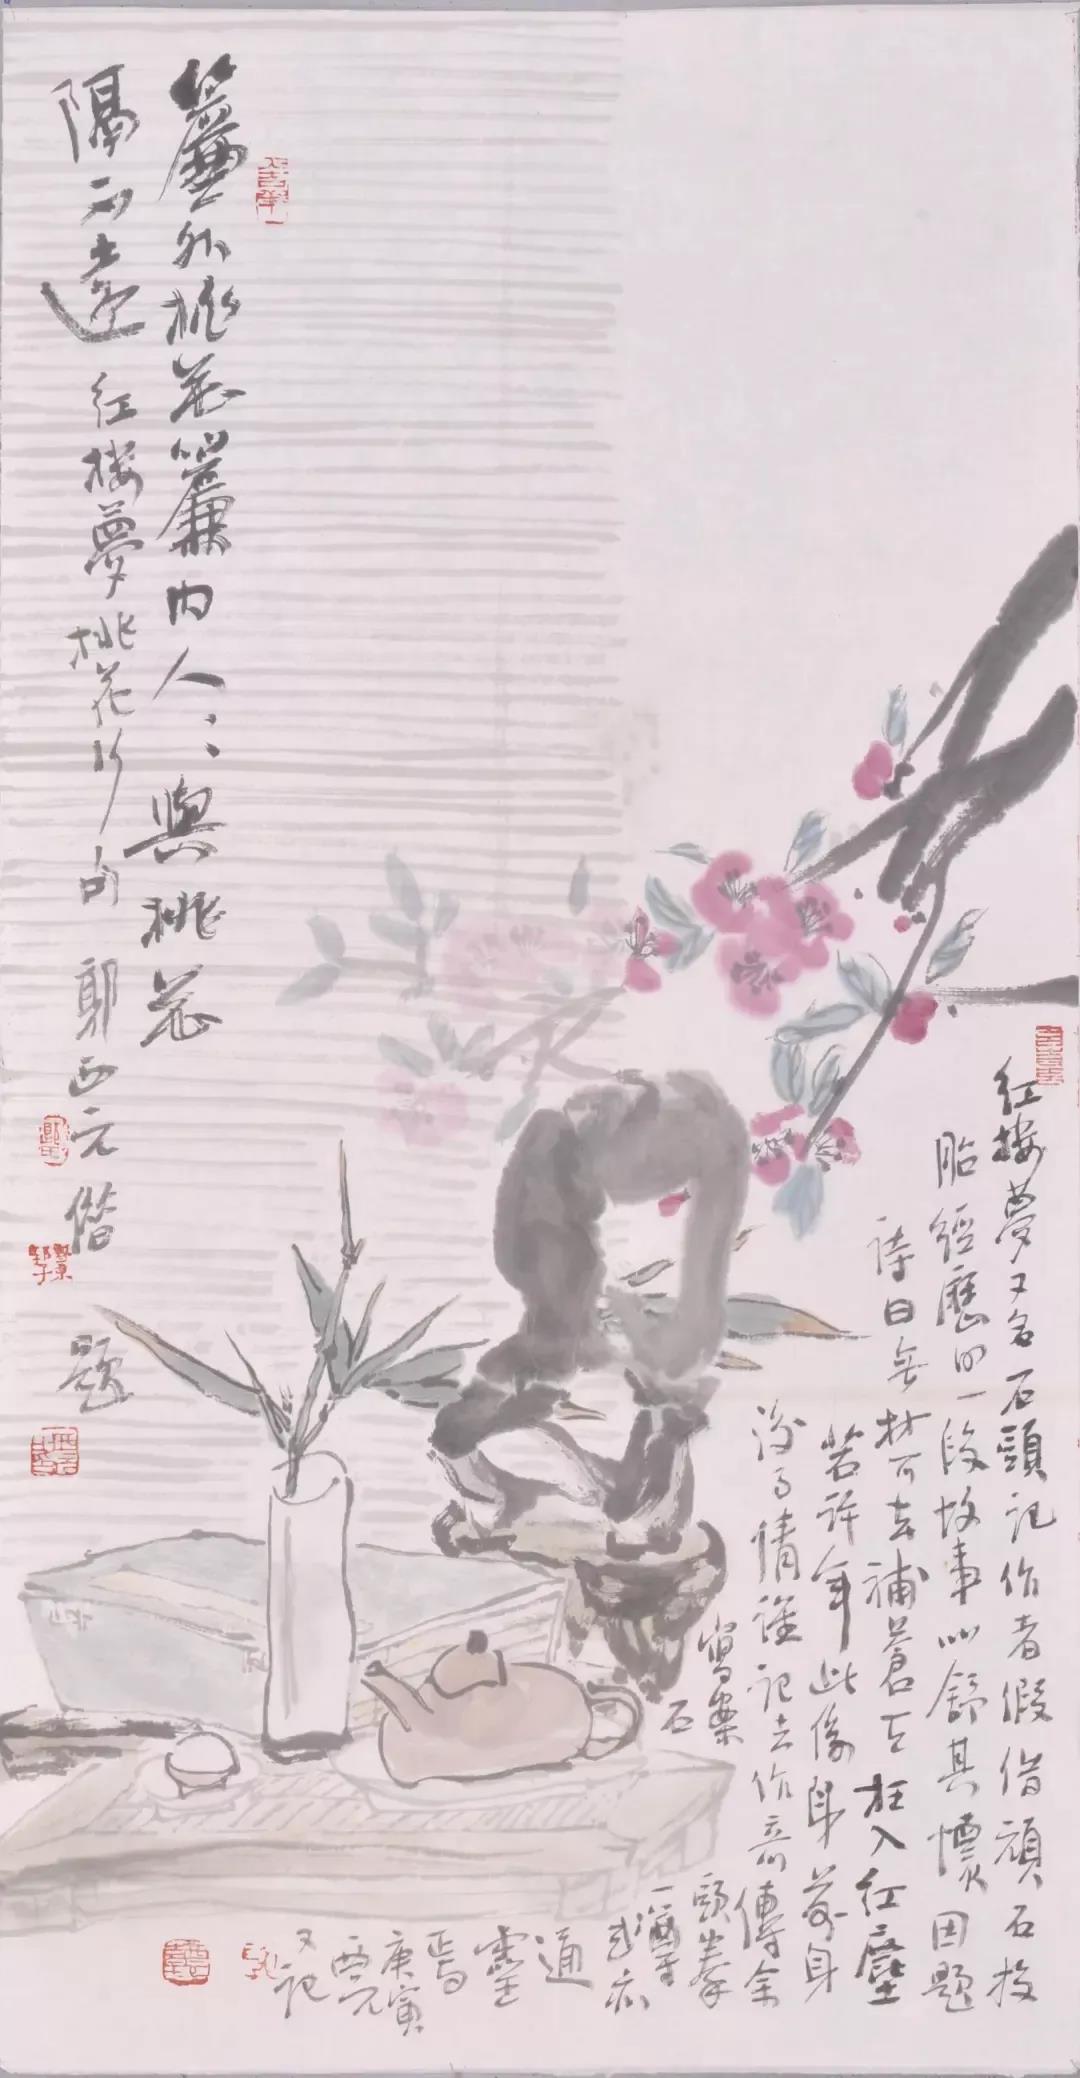 簾外桃花簾内人〻與桃花
隔不遠 紅樓夢桃花行句 郭西元偕題
紅樓夢又名石頭記作者假借頑石投
胎經歷的一段故事以舒其懷因題
詩曰無材可去補蒼天枉入紅塵
若許年此係身前身
後事倩誰記去作奇傳余
寫案頭拳
石一尊
或亦
通
靈
焉
庚寅
西元
又記